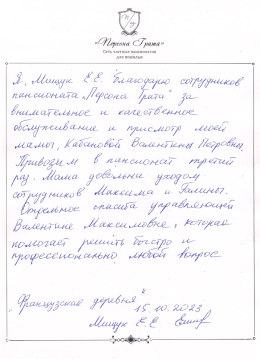 «Персона Грата»
Сеть частных пансионатов
для пожилых
Я, Мищук Е.Е. благодарю сотрудников
пансионата "Персона Грата" за
внимательное и качественное
обслуживание и присмотр моей
мамы, Кабановой Валентины Петровны.
Привозим в пансионат третий
раз. Мама довольна уходом
сотрудников Максима и Галины.
Огромное спасибо управляющей
Валентине Максимовне, которая
помогает решить быстро и
профессионально любой вопрос
"Французская деревня"
15.10.2023
Мищук Е.Е.